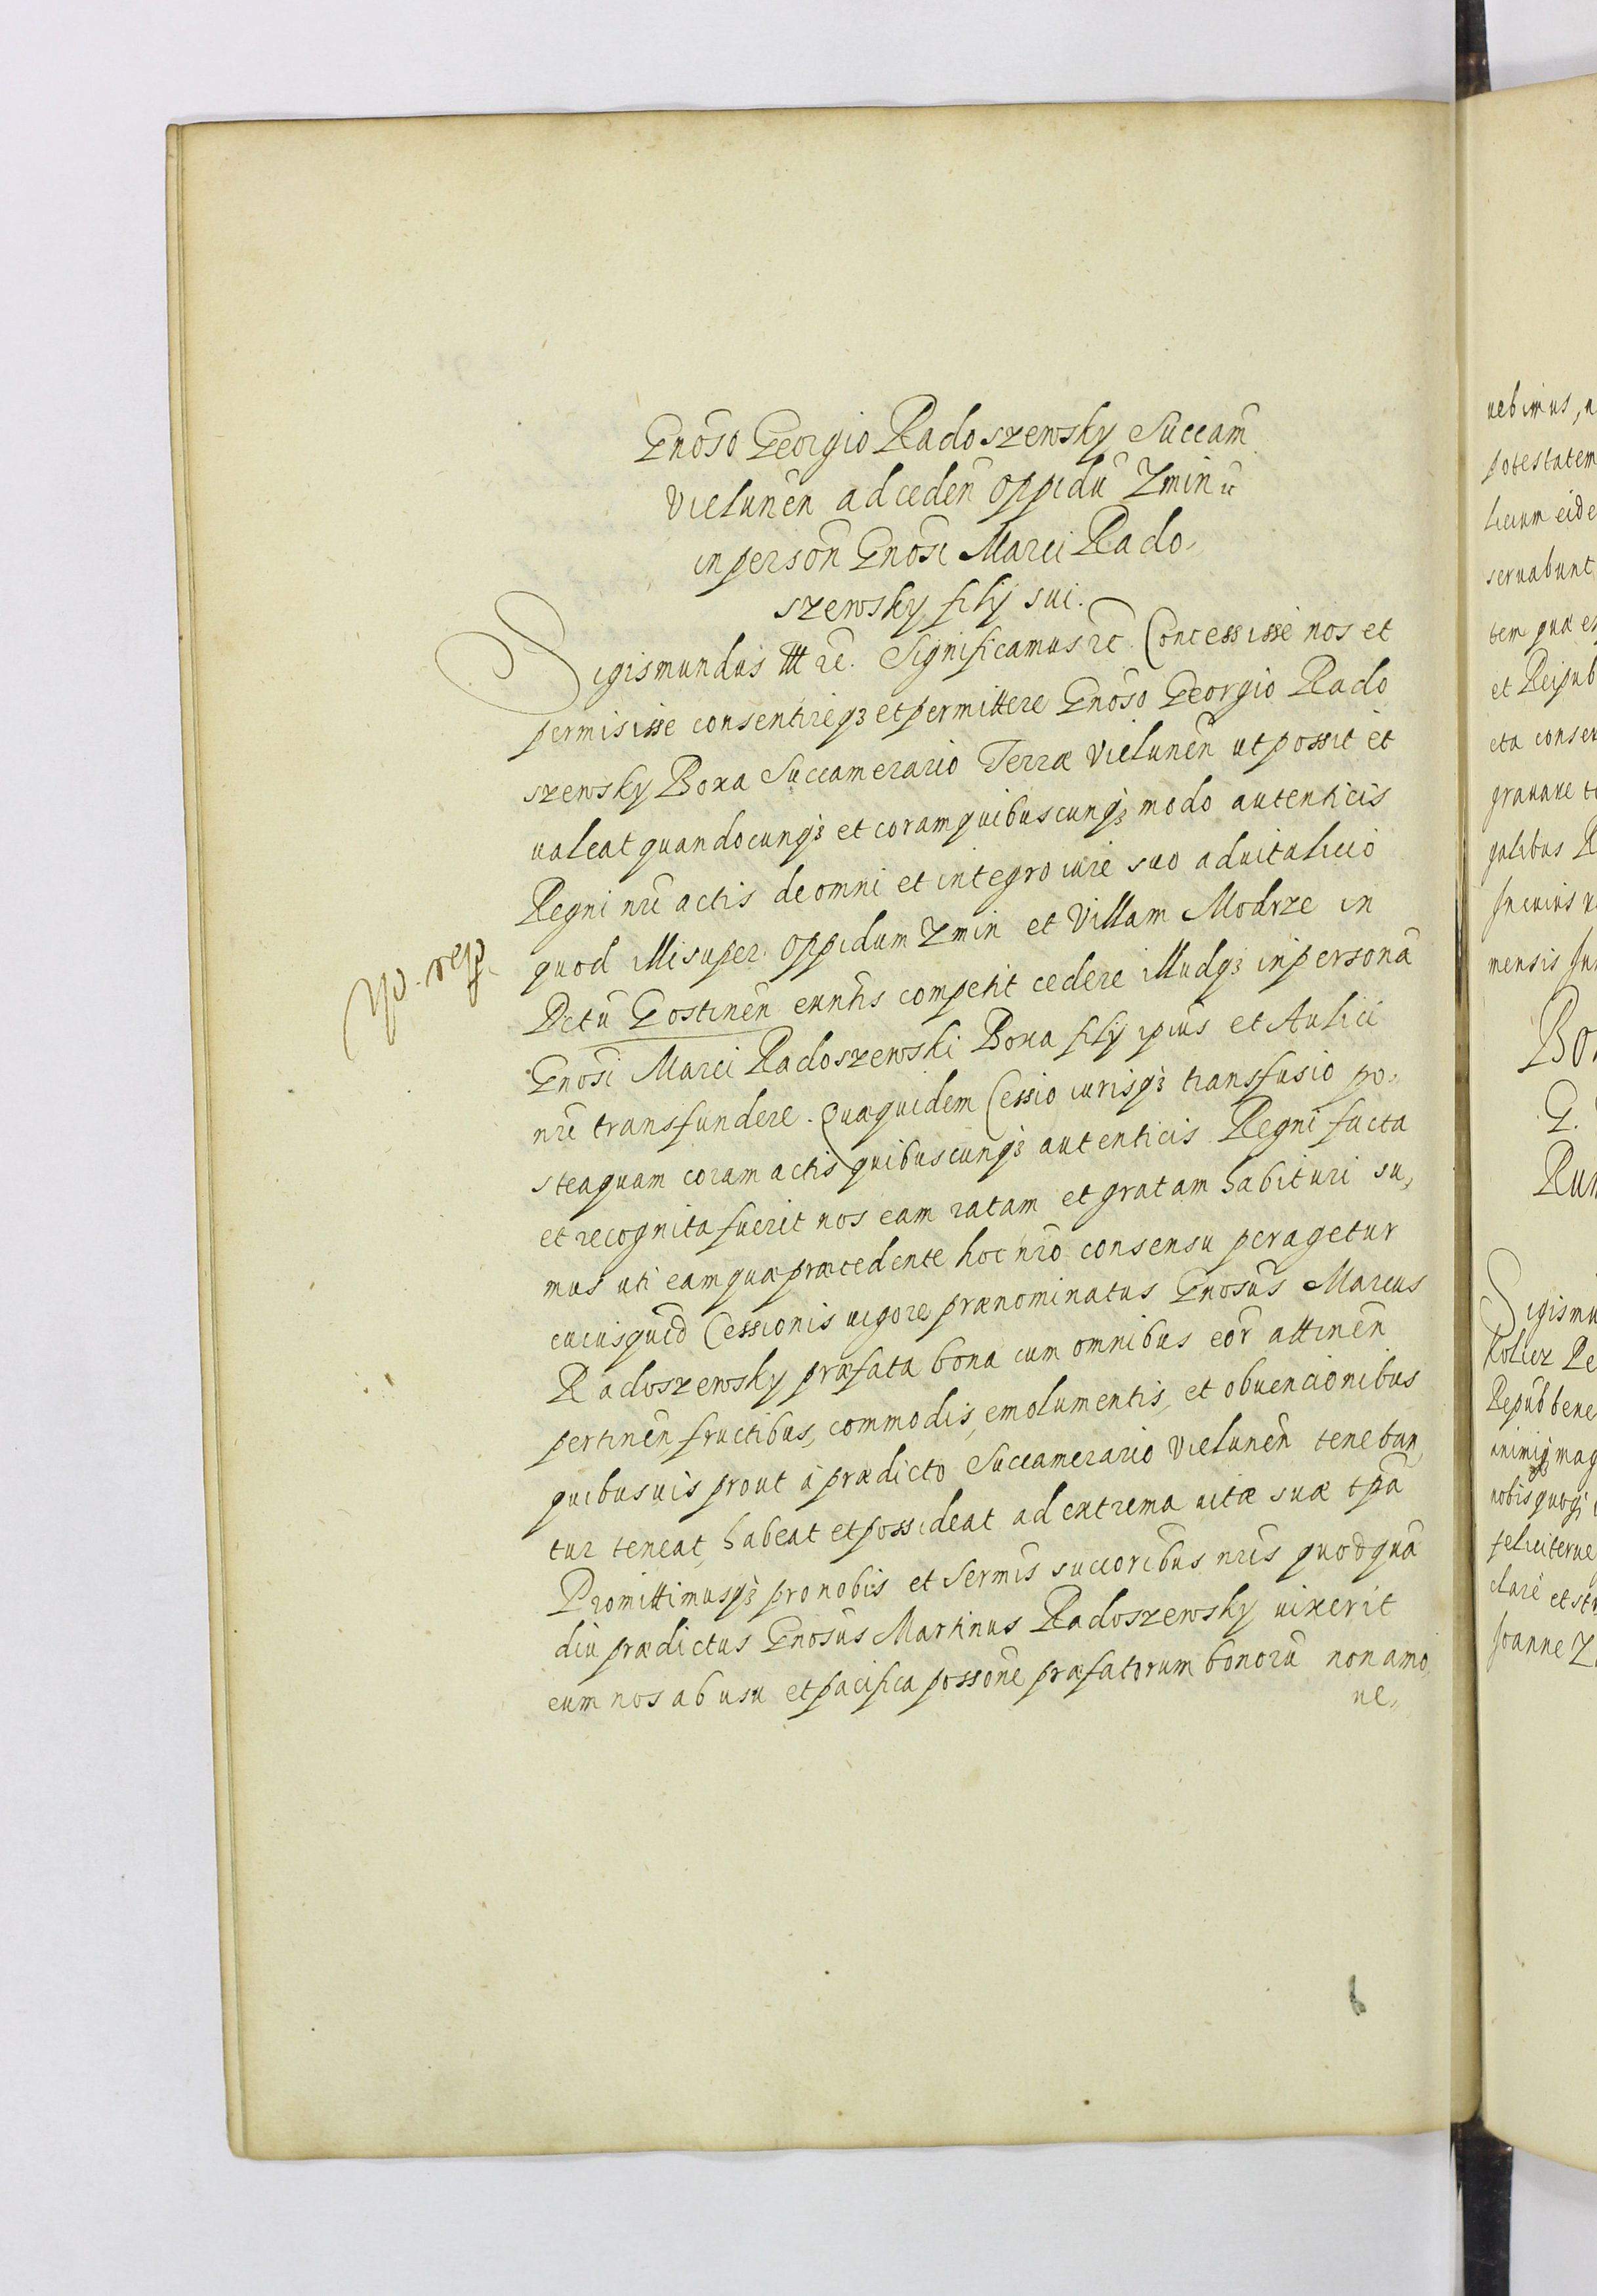 Gnoso Georgio Radoszewsky Succam̃
Vielunen̄ ad ceden̄ oppidū Zmin ꝛc
in person̄ Gnosi Marci Rado-
szewsky filij sui.
Sigismundus III ꝛc. Significamus ꝛc. Concessisse nos et
permisisse consentireqꝫ et permittere Gnoso Georgio Rado
szewsky Boxa Succamerario Terræ Vielunen̄ ut possit et
valeat quandocunqꝫ et coram quibuscunqꝫ modo autenticis
Regni nr̄i actis de omni et integro iure suo aduitalicio
quod illi super oppidum Zmin et Villam Modrze in
Dctū Gostinen̄ exn̄tis competit cedere illudqꝫ in personā
Gnosi Marci Radoszewski Boxa filij ipius et Aulici
nr̄i transfundere. Quæquidem Cessio iurisqꝫ transfusio po-
steaquam coram actis quibuscunqꝫ autenticis Regni facta
et recognita fuerit nos eam ratam et gratam habituri su-
mus uti eam quæ præcedente hoc nr̄o consensu peragetur
cuiusquid̄ Cessionis uigore prænominatus Gnosus Marcus
Radoszewsky præfata bona cum omnibus eor̄ attinen̄
pertinen̄ fructibus, commodis, emolumentis, et obuencionibus
quibusuis prout à prædicto Succamerario Vielunen̄ teneban
tur teneat, habeat et possideat ad extrema uitæ suæ tpā
Promittimusqꝫ pro nobis et Sermis succoribus nr̄is quod quā
diu prædictus Gnosus Martinus Radoszewsky uixerit
eum nos ab usu et pacifica possōne præfatorum bonorū non amo
ue-
6
uebimus, n
potestatem
licium eide
seruabunt
tem quæ ex
et Reipub
eta conser
grauare
galibus R
mensis Jun
Bo
G.
Run
Sigismu
Repub bene
nobis quoqꝫ
feliciterue
clarè et str
Joanne Z